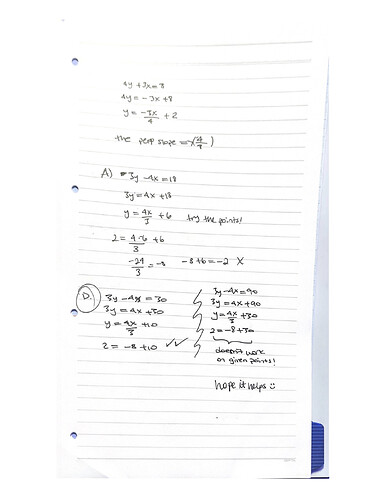 4y + 3x = 8
4y = -3x + 8
y = -3x/4 + 2
the perp slope =
A) 3y - 4x = 18
3y = 4x + 18
y = 4x/3 + 6 try the points!
2 = 4·-6/3 + 6
-24/3 = -8 -8 + 6 = -2 X
D. 3y - 4x = 30
3y = 4x + 30
y = 4x/3 + 10
2 = -8 + 10 ✓✓
3y - 4x = 90
3y = 4x + 90
y = 4x/3 + 30
2 = -8 + 30
doesn't work
on given points!
hope it helps :)